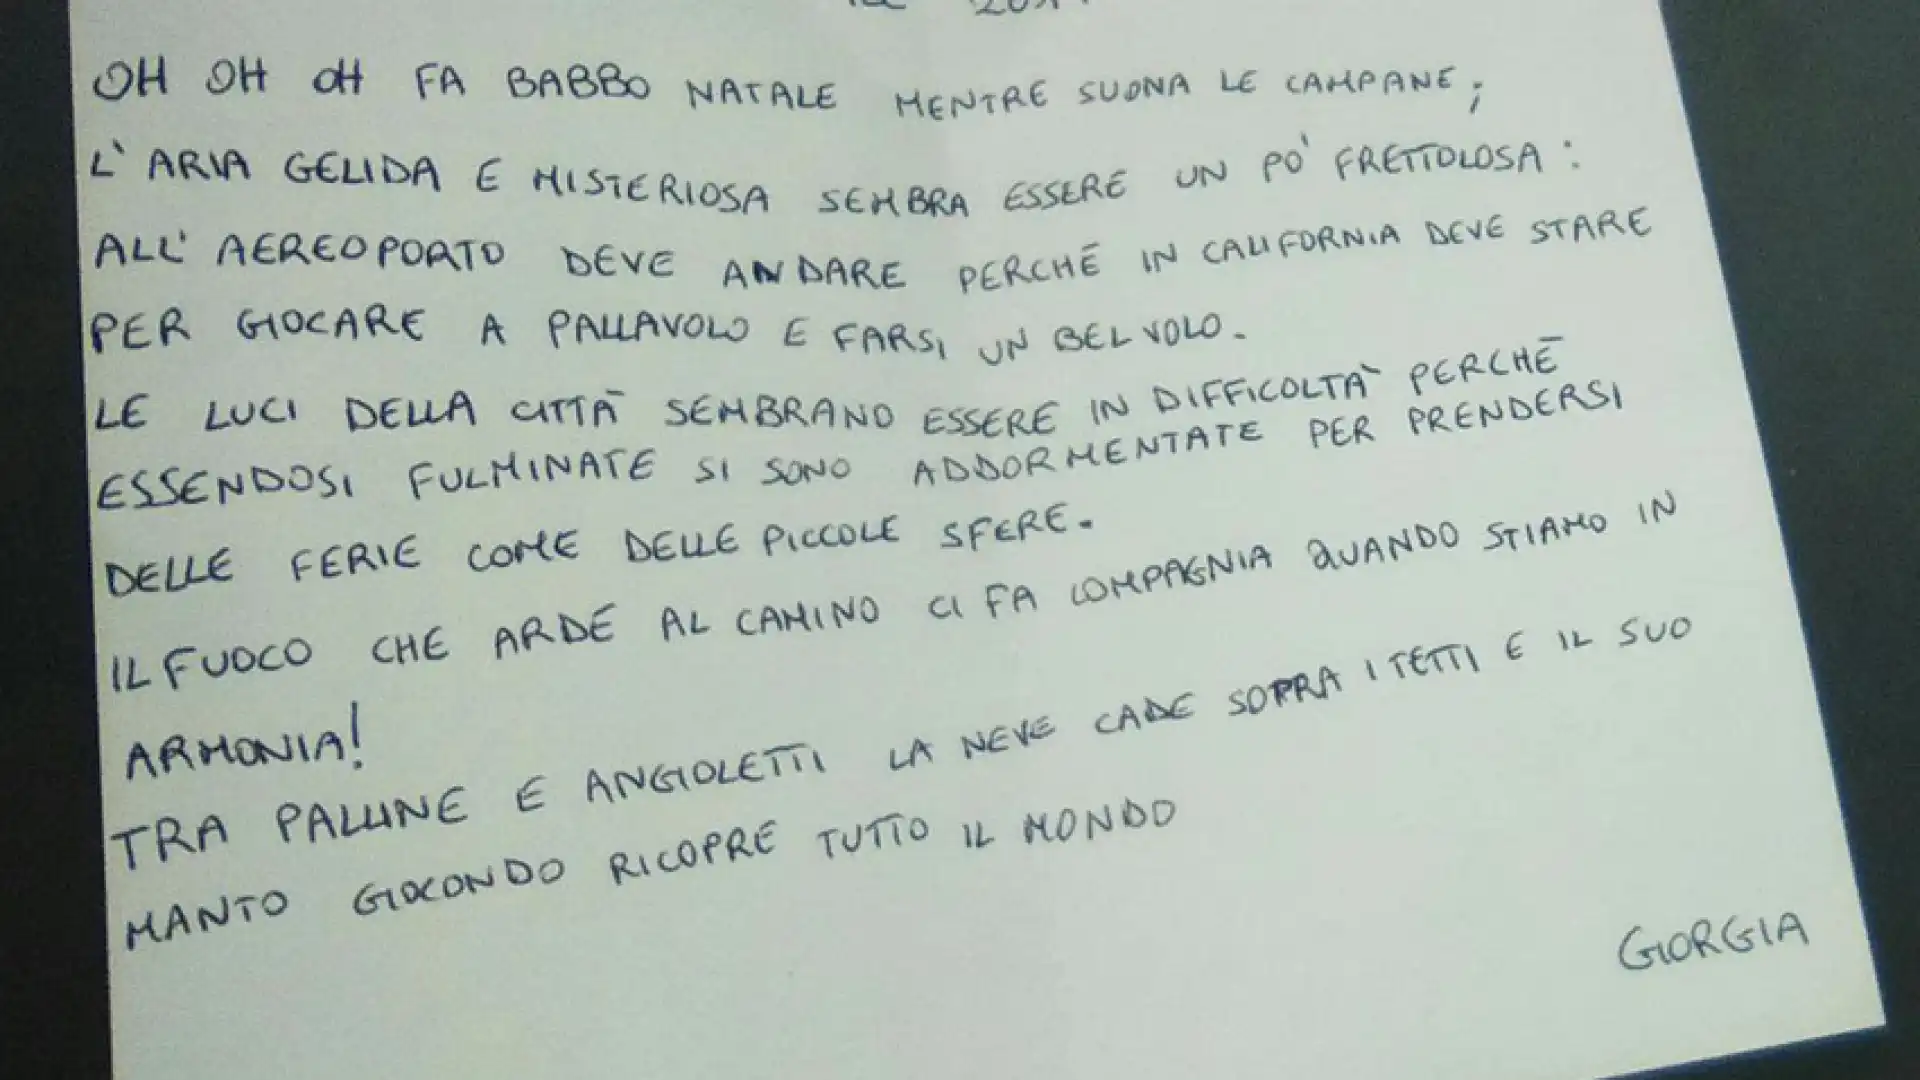 OH OH OH FA BABBO NATALE MENTRE SUONA LE CAMPANE;
L'ARIA GELIDA E MISTERIOSA SEMBRA ESSERE UN PO' FRETTOLOSA:
ALL'AEREOPORTO DEVE ANDARE PERCHÉ IN CALIFORNIA DEVE STARE
PER GIOCARE A PALLAVOLO E FARSI UN BEL VOLO.
LE LUCI DELLA CITTÀ SEMBRANO ESSERE IN DIFFICOLTÀ PERCHÉ
ESSENDOSI FULMINATE SI SONO ADDORMENTATE PER PRENDERSI
DELLE FERIE COME DELLE PICCOLE SFERE.
IL FUOCO CHE ARDE AL CAMINO CI FA COMPAGNIA QUANDO STIAMO IN
ARMONIA!
TRA PALLINE E ANGIOLETTI LA NEVE CADE SOPRA I TETTI E IL SUO
MANTO GIOCONDO RICOPRE TUTTO IL MONDO
GIORGIA